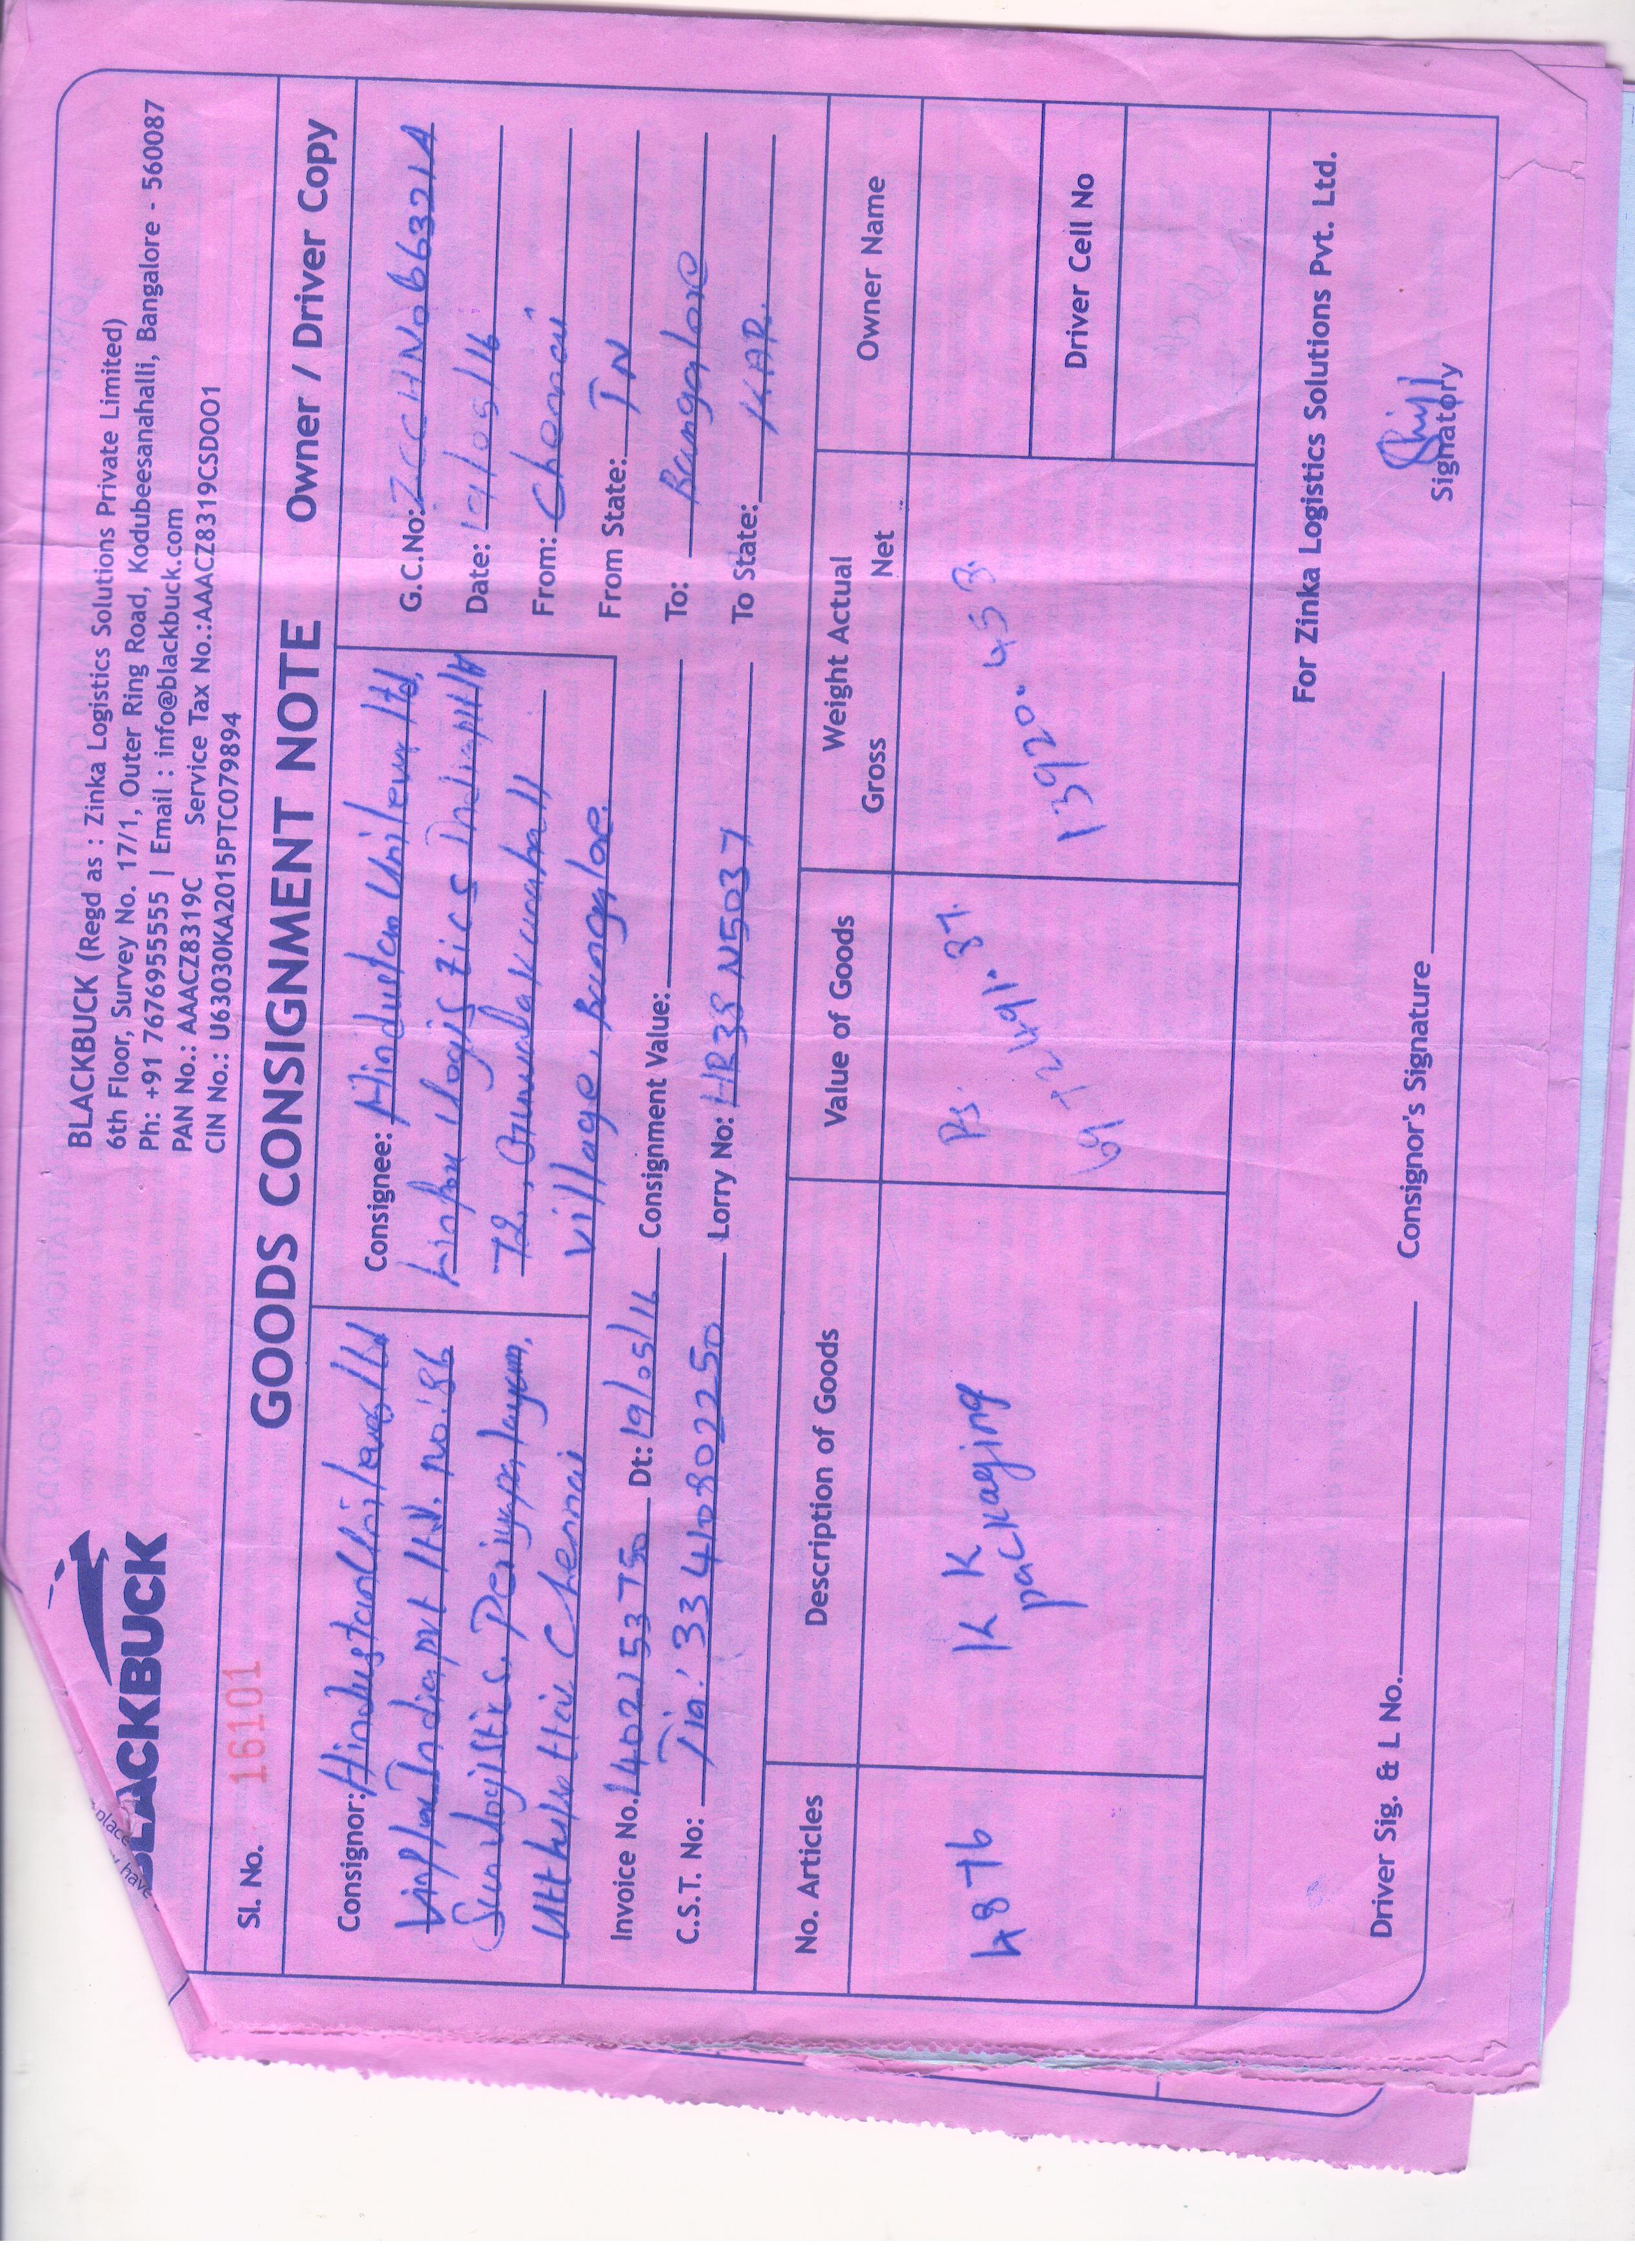 BLACKBUCK
BLACKBUCK (Regd as : Zinka Logistics Solutions Private Limited)
6th Floor, Survey No. 17/1, Outer Ring Road, Kodubeesanahalli, Bangalore - 560087
Ph: +91 7676955555 | Email : info@blackbuck.com
PAN No.: AAACZ8319C Service Tax No.:AAACZ8319CSDOO1
CIN No.: U63030KA2015PTC079894
Sl. No. 16101
GOODS CONSIGNMENT NOTE
Owner / Driver Copy
Consignor: Hindustan Unilever ltd
India pvt ltd. no: 86
Sun logistics, Periyapalayam,
Chennai
Consignee: Hindustan Unilever ltd,
Logistics India pvt ltd
72,
Village, Bangalore.
G.C.No: ZCCHNo66321A
Date: 19/05/16
From: Chennai
From State: TN
To: Bangalore
To State: KAR.
Invoice No. 1402153750 Dt: 19/05/16 Consignment Value:
C.S.T. No: Tin: 33410802250 Lorry No: HR38 N5037
No. Articles
Description of Goods
Value of Goods
Weight Actual
Gross Net
Owner Name
4876
K K
packaging
Rs.
6972491.87.
13920.453.
Driver Cell No
For Zinka Logistics Solutions Pvt. Ltd.
Driver Sig. & L No.
Consignor's Signature
Signatory